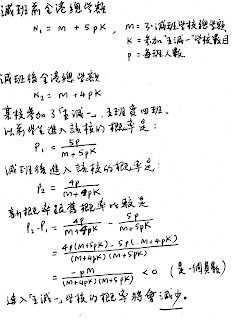 減班前全港總學額
N₁ = m + 5pK , m = 不減班學校總學額
K = 參加"主減一"學校數目
p = 每班人數
減班後全港總學額
N₂ = m + 4pK
某校參加了"主減一", 五班變四班。
以前學生進入該校的概率是:
P₁ = 5p / (m+5pK)
減班後進入該校的概率是:
P₂ = 4p / (m+4pK)
新概率較舊概率比較是
P₂ - P₁ = 4p / (m+4pK) - 5p / (m+5pK)
= (4p(m+5pK) - 5p(m+4pK)) / ((m+4pK)(m+5pK))
= -pm / ((m+4pK)(m+5pK)) < 0 (是一個負數)
進入"主減一"學校的概率將會減少。